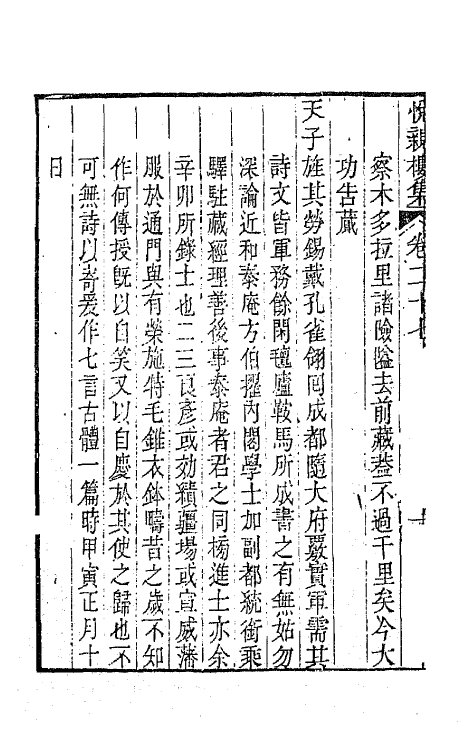 悅親樓集 卷二十七
察木多拉里諸險隘去前藏葢不過千里矣今大
功告蕆
天子旌其勞錫戴孔雀翎囘成都隨大府覈實軍需其
詩文皆軍務餘閑氊廬鞍馬所成書之有無姑勿
深論近和泰庵方伯擢內閣學士加副都統銜乘
驛駐藏經理善後事泰庵者君之同榜進士亦余
辛卯所錄士也二三良彥或効績疆場或宣威藩
服於通門與有榮施特毛錐衣鉢疇昔之歲不知
作何傳授旣以自笑又以自慶於其使之歸也不
可無詩以寄爰作七言古體一篇時甲寅正月十
日